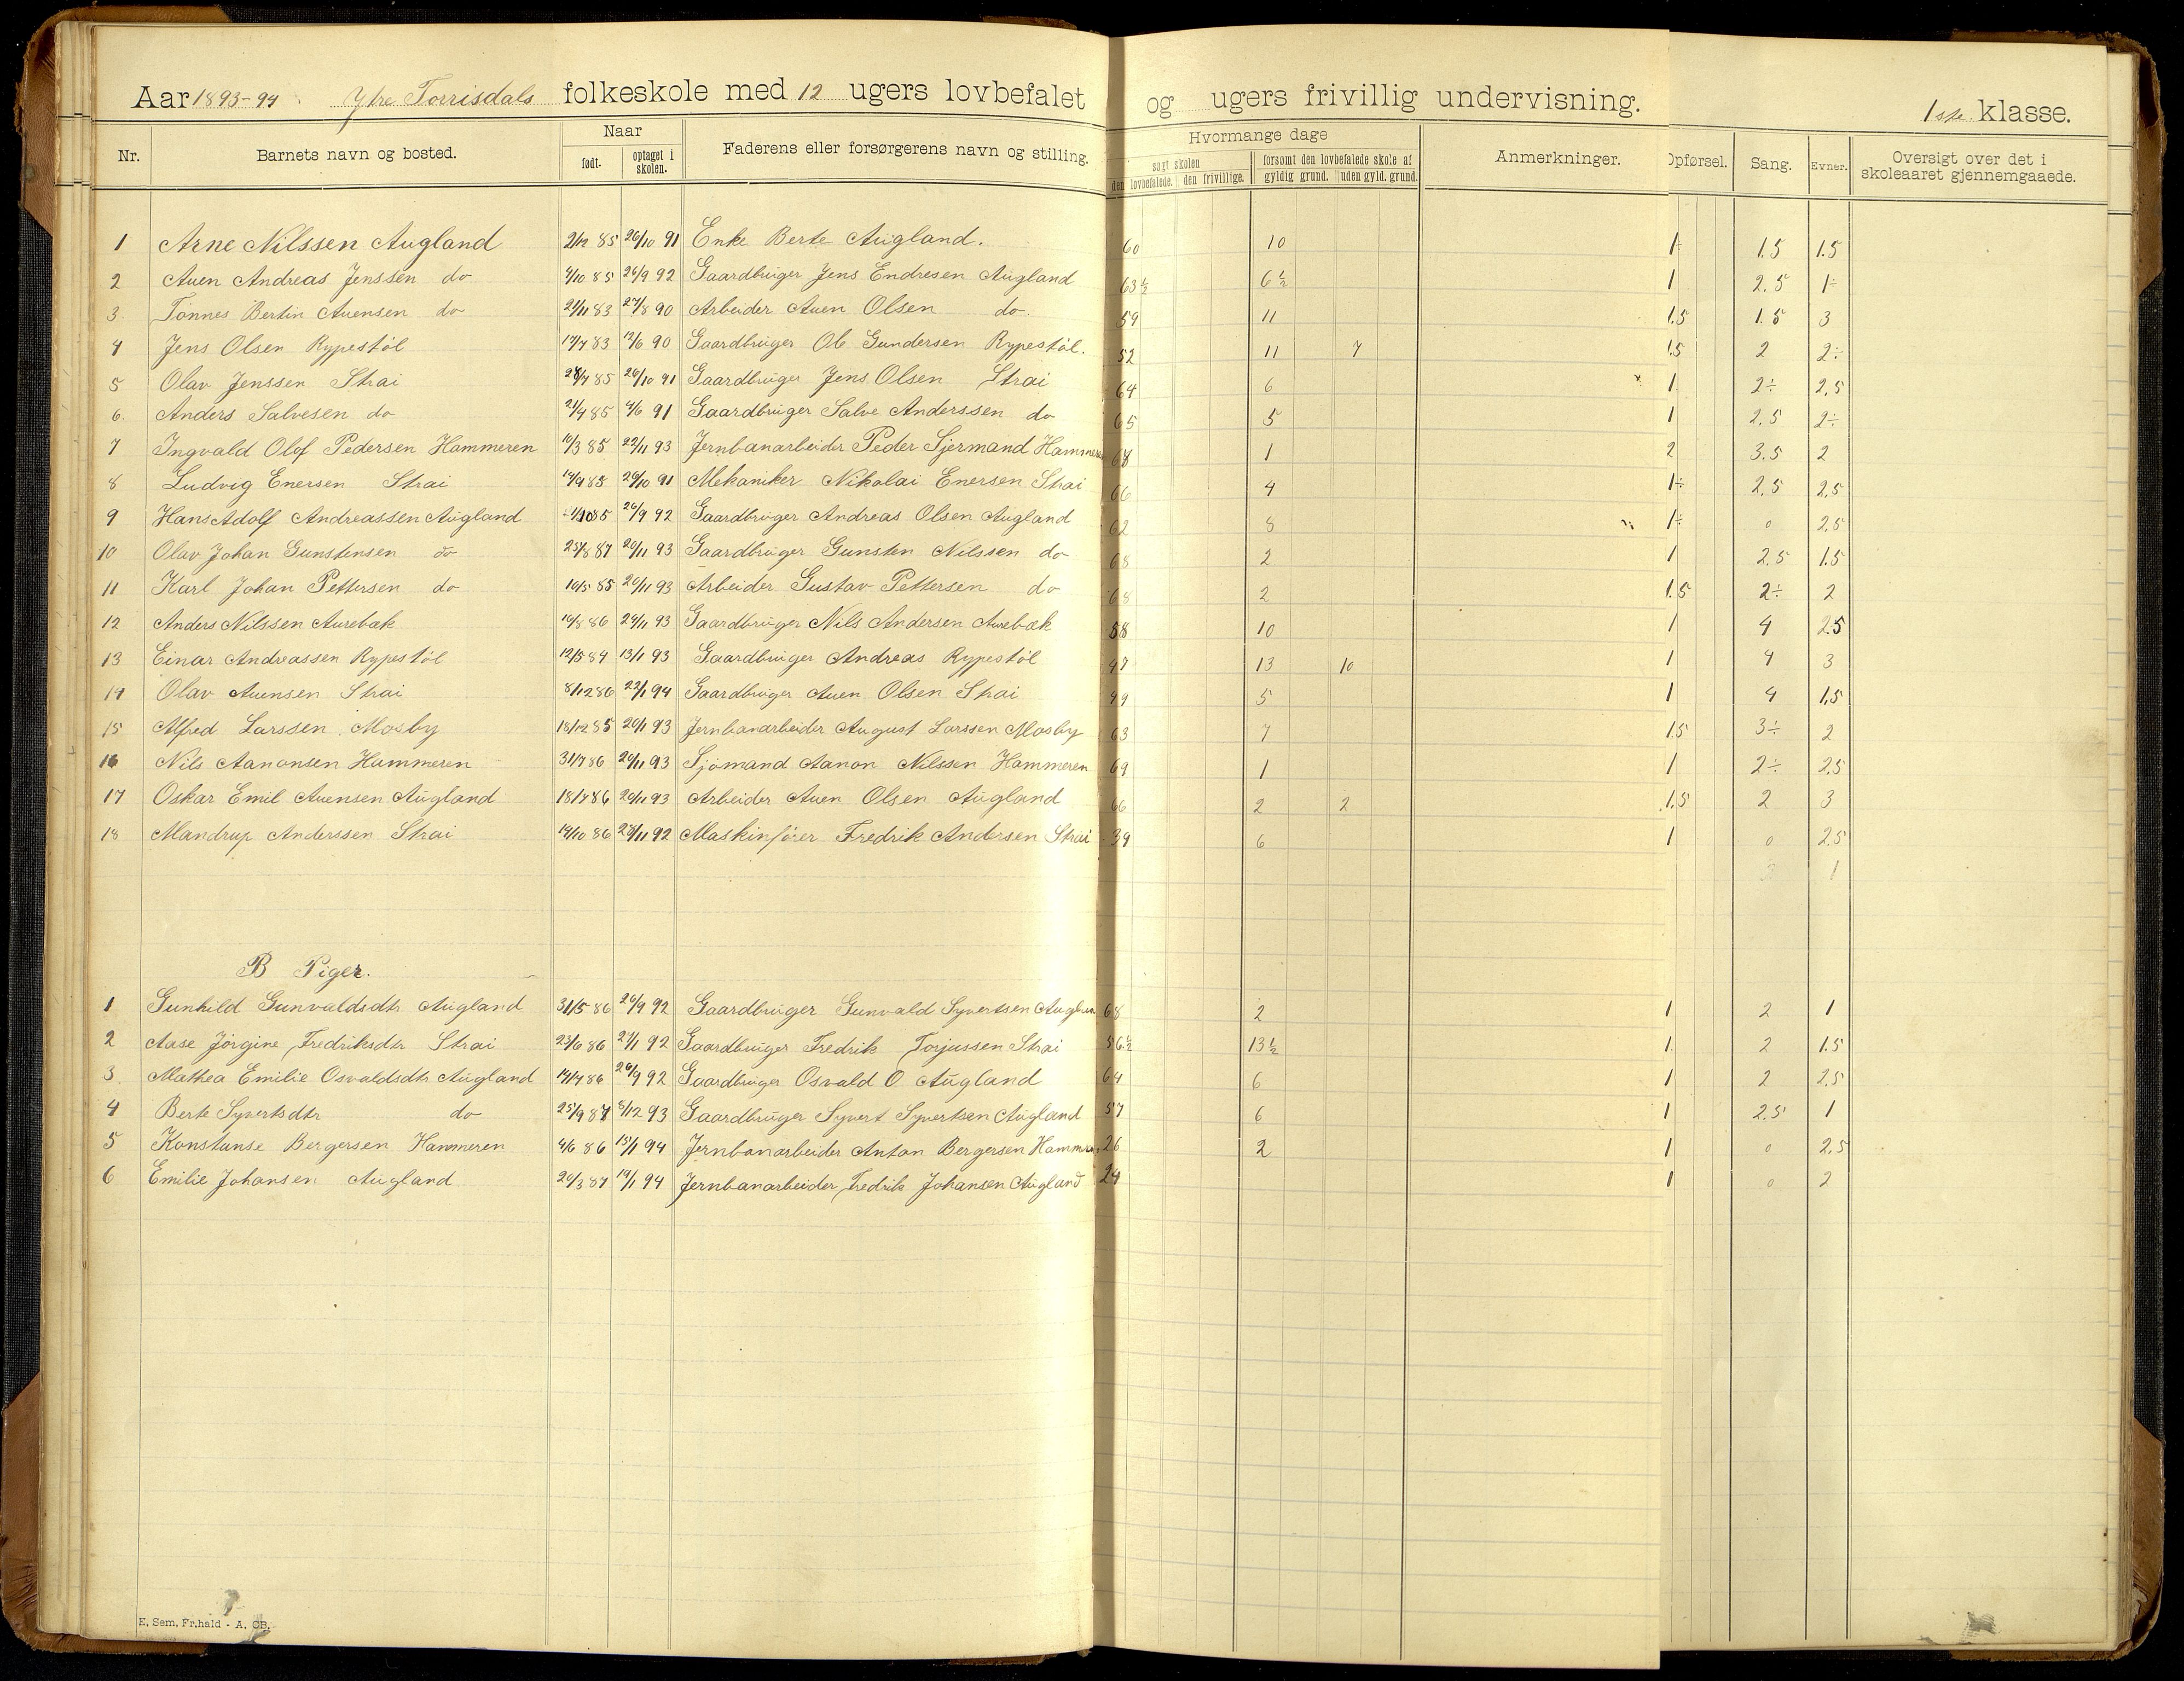 Aar 1893-94. Ytre Torrisdals folkeskole med 12 ugers lovbefalet og ugers frivillig undervisning. 1ste klasse.
Nr. Barnets navn og bosted. Naar født. optaget i skolen. Faderens eller forsørgerens navn og stilling. Hvormange dage søgt skolen den lovbefalede. den frivillige. forsømt den lovbefalede skole af gyldig grund. uden gyld. grund. Anmerkninger. Opførsel. Sang. Evner. Oversigt over det i skoleaaret gjennemgaaede.
1 Arne Nilssen Augland 2/12 85 26/10 91 Enke Berte Augland. 60 10 1÷ 1.5 1.5
2 Auen Andreas Jenssen do 4/10 85 26/9 92 Gaardbruger Jens Endresen Augland 63½ 6½ 1 2.5 1÷
3. Tønnes Bertin Auensen do 21/11 83 27/8 90 Arbeider Auen Olsen do 59 11 1.5 1.5 3
4 Jens Olsen Rypestøl 17/7 83 12/6 90 Gaardbruger Ole Gundersen Rypestøl. 52 11 7 1.5 2 2÷
5 Olav Jenssen Strai 28/7 85 26/10 91 Gaardbruger Jens Olsen Strai 64 6 1 2÷ 2,5
6. Anders Salvesen do 21/4 85 4/6 91 Gaardbruger Salve Anderssen do 65 5 1 2.5 2÷
7 Ingvald Olof Pedersen Hammeren 10/3 85 22/11 93 Jernbanarbeider Peder Sjermand Hammeren 68 1 2 3.5 2
8 Ludvig Enersen Strai 14/9 85 26/10 91 Mekaniker Nikolai Enersen Strai 66 4 1÷ 2.5 2,5
9 Hans Adolf Andreassen Augland 1/10 85 26/9 92 Gaardbruger Andreas Olsen Augland 62 8 1÷ 0 2,5
10 Olav Johan Gunstensen do 25/8 87 20/11 93 Gaardbruger Gunsten Nilssen do 68 2 1 2.5 1.5
11 Karl Johan Pettersen do 10/5 85 20/11 93 Arbeider Gustav Pettersen do 68 2 1.5 2÷ 2
12 Anders Nilssen Aurebæk 10/8 86 24/11 93 Gaardbruger Nils Andersen Aurebæk 58 10 1 4 2.5
13 Einar Andreassen Rypestøl 12/5 84 13/1 93 Gaardbruger Andreas Rypestøl 47 13 10 1 4 3
14 Olav Auensen Strai 8/12 86 22/1 94 Gaardbruger Auen Olsen Strai 49 5 1 4 1,5
15 Alfred Larssen Mosby 18/12 85 20/11 93 Jernbanarbeider August Larssen Mosby 63 7 1.5 3÷ 2
16 Nils Aanonsen Hammeren 31/7 86 20/11 93 Sjømand Aanon Nilssen Hammeren 69 1 1 2÷ 2,5
17 Oskar Emil Auensen Augland 18/7 86 20/11 93 Arbeider Auen Olsen Augland 66 2 2 1.5 2 3
18 Mandrup Anderssen Strai 14/10 86 28/11 92 Maskinfører Fredrik Andersen Strai 39 6 1 0 2.5
1
B Piger.
1 Gunhild Gunvaldsdtr Augland 31/5 86 26/9 92 Gaardbruger Gunvald Syvertsen Augland 68 2 1 2 1
2 Aase Jørgine Fredriksdtr Strai 23/6 86 27/1 92 Gaardbruger Fredrik Torjussen Strai 56½ 13½ 1 2 1.5
3. Mathea Emilie Osvaldsdtr Augland 14/7 86 26/9 92 Gaardbruger Osvald O Augland 64 6 1 2 2,5
4 Berte Syvertsdtr do 25/9 87 8/12 93 Gaardbruger Syvert Syvertsen Augland 57 6 1 2.5 1
5 Konstanse Bergersen Hammeren 4/6 86 15/1 94 Jernbanarbeider Anton Bergersen Hammeren 26 2 1 0 2,5
6 Emilie Johansen Augland 20/3 87 19/1 94 Jernbanarbeider Fredrik Johansen Augland 24 1 0 2
E. Sem, Fr.hald - A. CB.